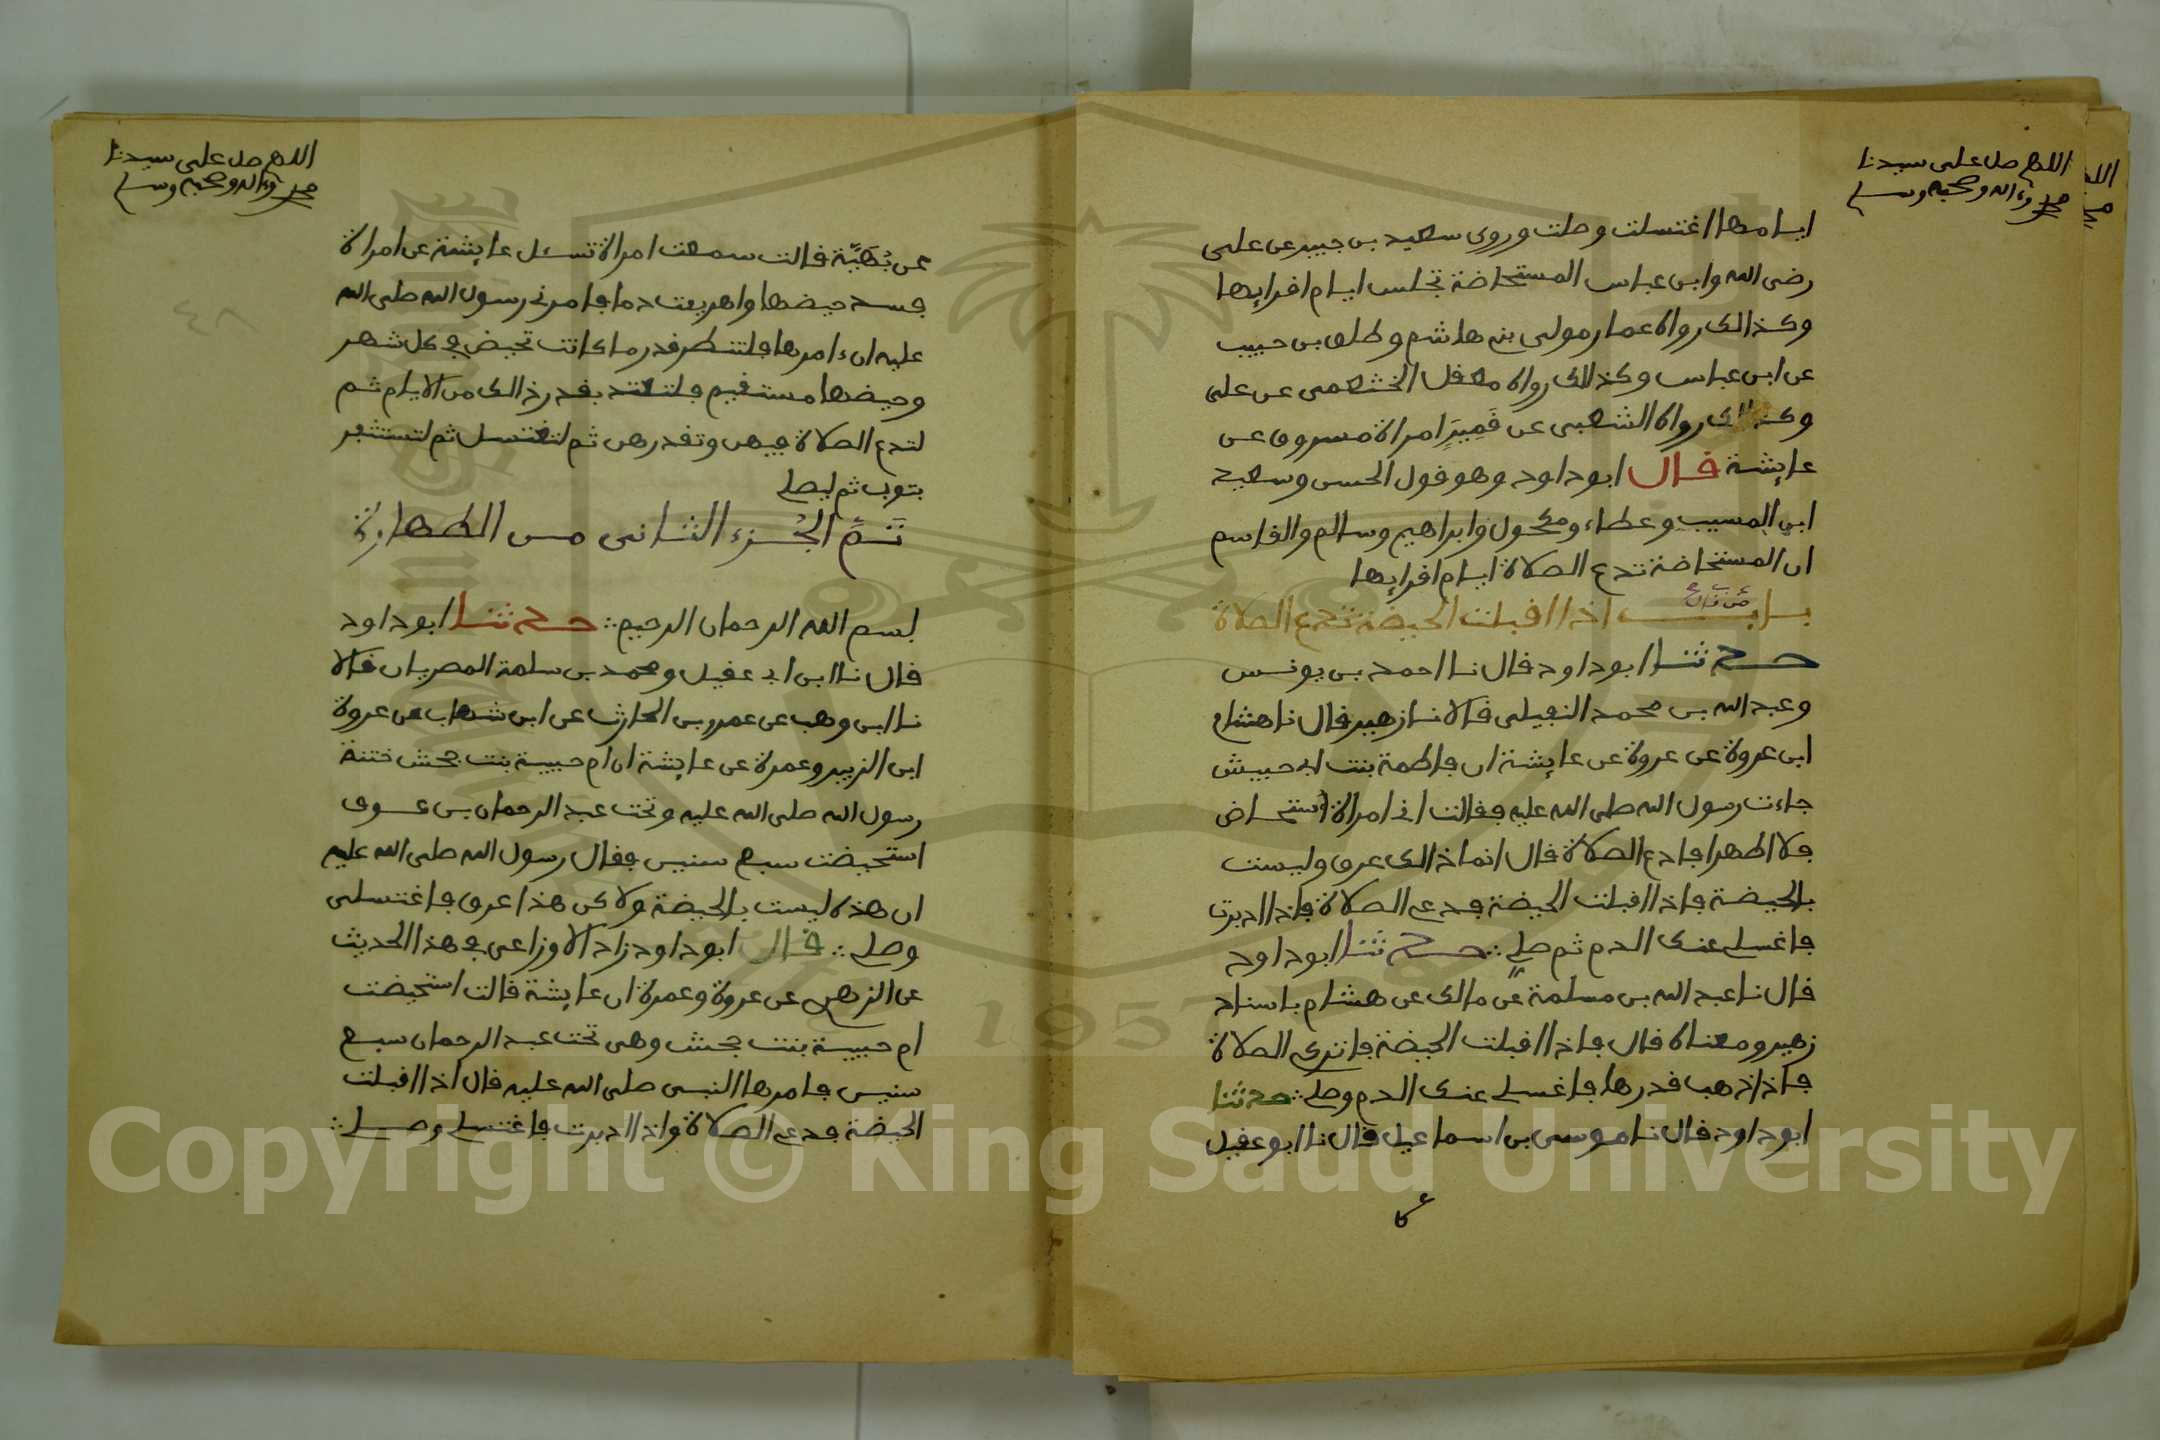 اللهم صل على سيدنا
محمد وءاله وصحبه وسلم
ايامها اغتسلت وصلت وروى سعيد بن جبير عن على
رضى الله وابن عباس المستحاضة تجلس ايام اقرايها
وكذالك رواه عمار مولى بنى هاشم وطلق بن حبيب
عن ابن عباس وكذالك رواه معقل الخثعمى عن على
وكذالك رواه الشعبى عن قمير امراة مسروق عن
عايشة قال ابو داود وهو قول الحسن وسعيد
ابن المسيب وعطاء ومكحول وابراهيم وسالم والقاسم
ان المستحاضة تدع الصلاة ايام اقرايها
باب اذا اقبلت الحيضة تدع الصلاة
حدثنا ابو داود قال نا احمد بن يونس
وعبد الله بن محمد النفيلى قالا نا زهير قال نا هشام
ابن عروة عن عروة عن عايشة ان فاطمة بنت ابى حبيش
جاءت رسول الله صلى الله عليه فقالت انى امراة استحاض
فلا اطهر افادع الصلاة قال انما ذالك عرق وليست
بالحيضة فاذا اقبلت الحيضة فدعى الصلاة فاذا ادبرت
فاغسلى عنك الدم ثم صلى حدثنا ابو داود
قال نا عبد الله بن مسلمة عن مالك عن هشام باسناد
زهير ومعناه قال فاذا اقبلت الحيضة فاتركى الصلاة
فاذا ذهب قدرها فاغسلى عنك الدم وصلى حدثنا
ابو داود قال نا موسى بن اسماعيل قال نا ابو عقيل
اللهم صل على سيدنا
محمد وءاله وصحبه وسلم
٤٨
عن بُهَيَّة قالت سمعت امراة تسئل عايشة عن امراة
فسد حيضها واهريقت دما فامرنى رسول الله صلى الله
عليه ان ءامرها فلتنظر قدر ما كانت تحيض فى كل شهر
وحيضها مستقيم فلتعتد بقدر ذالك من الايام ثم
لتدع الصلاة فيهن وتقدرهن ثم لتغتسل ثم لتستثفر
بثوب ثم ليصلى
تَمَّ الجُزء الثانى من الطهارة
بسم الله الرحمان الرحيم حدثنا ابو داود
قال نا ابن ابى عقيل ومحمد بن سلمة المصريان قالا
نا ابن وهب عن عمرو بن الحارث عن ابن شهاب عن عروة
ابن الزبير وعمرة عن عايشة ان ام حبيبة بنت جحش ختنة
رسول الله صلى الله عليه وتحت عبد الرحمان بن عوف
استحيضت سبع سنين فقال رسول الله صلى الله عليه
ان هذه ليست بالحيضة ولاكن هذا عرق فاغتسلى
وصلى قال ابو داود زاد الاوزاعى فى هذا الحديث
عن الزهرى عن عروة وعمرة ان عايشة قالت استحيضت
ام حبيبة بنت جحش وهى تحت عبد الرحمان سبع
سنين فامرها النبى صلى الله عليه قال اذا اقبلت
الحيضة فدعى الصلاة واذا ادبرت فاغتسلى وصلى
Copyright © King Saud University
1957